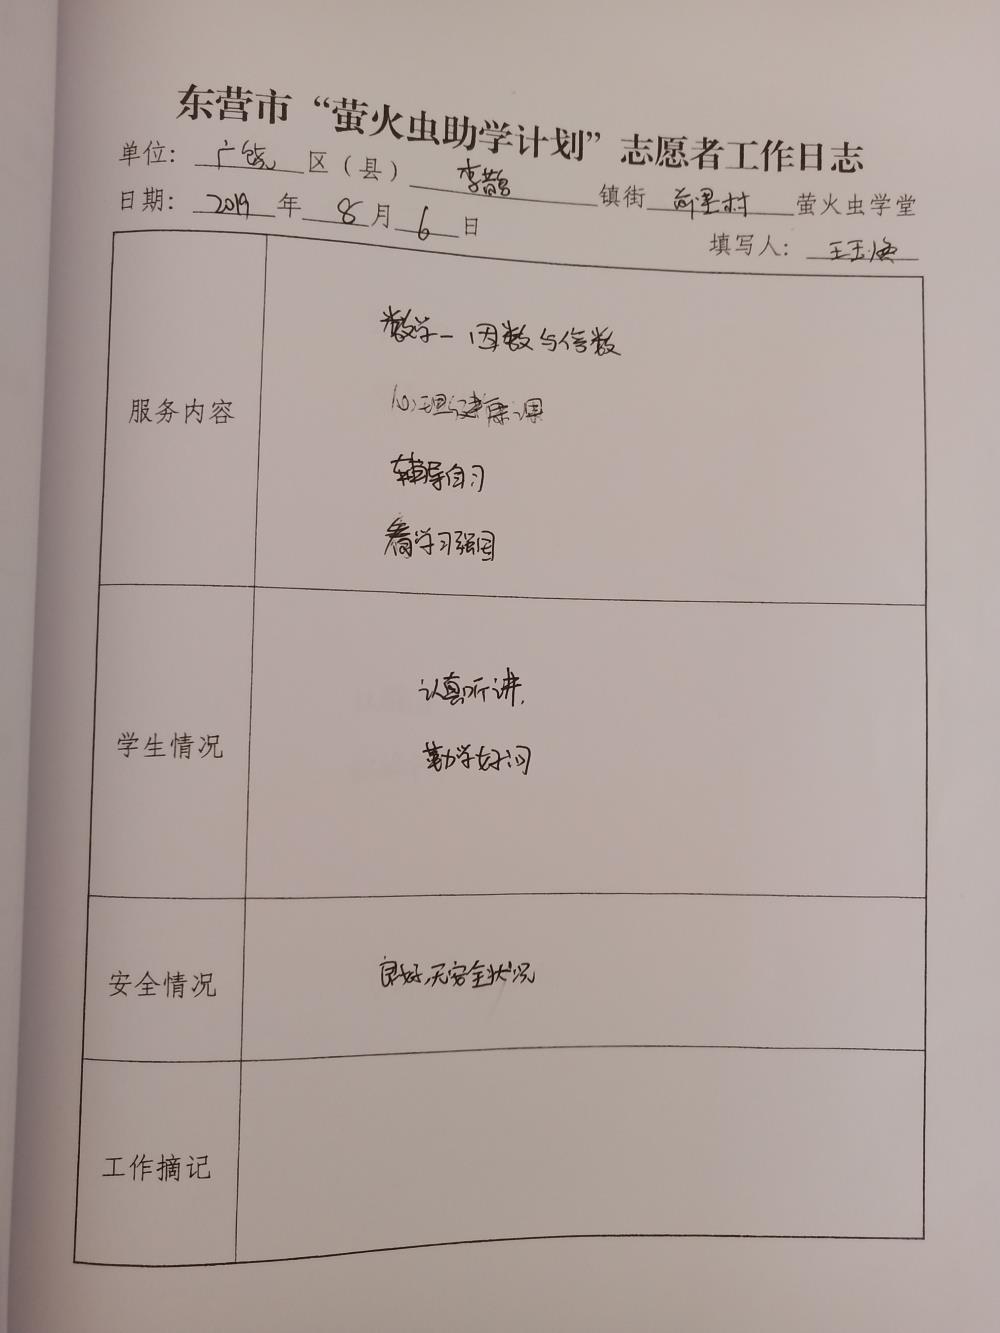 东营市“萤火虫助学计划”志愿者工作日志
单位：广饶区（县）李鹊镇街前里村萤火虫学堂
日期：2019年8月6日
填写人：王玉
服务内容
数学—因数与倍数
心理健康课
辅导自习
看学习强国
学生情况
认真听讲,
勤学好问
安全情况
良好,无安全状况
工作摘记